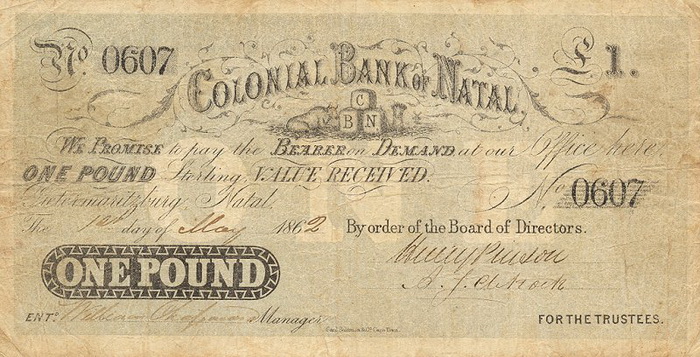 No. 0607
£1.
COLONIAL BANK OF NATAL.
C
B N
WE PROMISE to pay the BEARER on DEMAND at our Office here
ONE POUND Sterling, VALUE RECEIVED.
Pietermaritzburg, Natal.
No 0607
The 1st day of May 1862
By order of the Board of Directors.
ONE POUND
ENTD William Chapman Manager
FOR THE TRUSTEES.